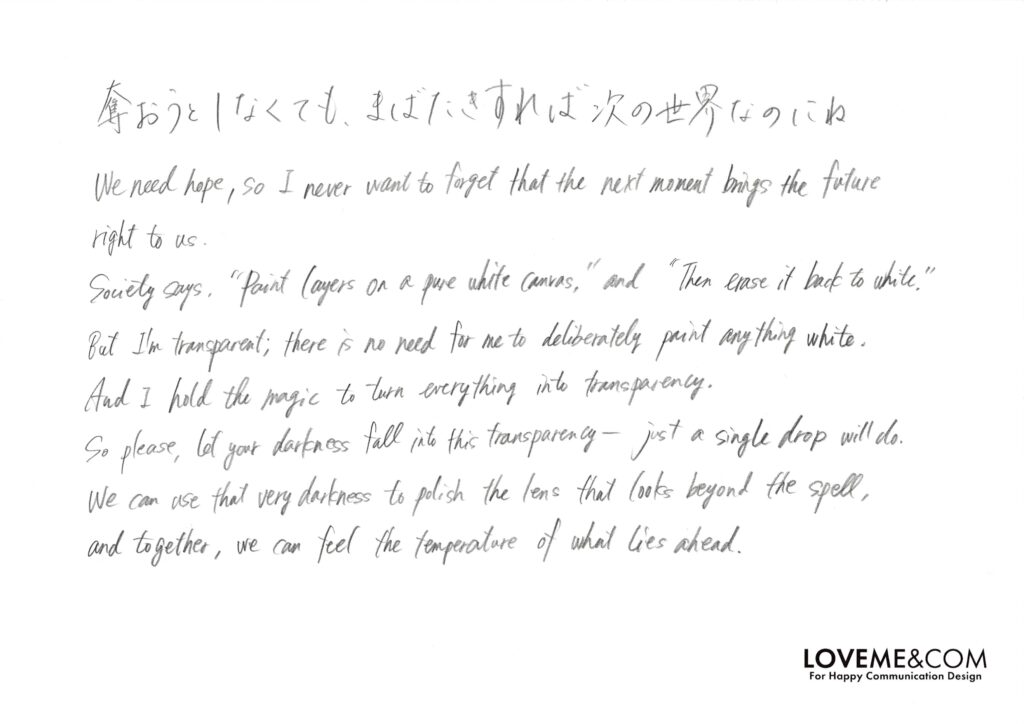 奪おうとしなくても、まばたきすれば次の世界なのにね
We need hope, so I never want to forget that the next moment brings the future
right to us.
Society says, "Paint layers on a pure white canvas," and "Then erase it back to white."
But I'm transparent; there is no need for me to deliberately paint anything white.
And I hold the magic to turn everything into transparency.
So please, let your darkness fall into this transparency— just a single drop will do.
We can use that very darkness to polish the lens that looks beyond the spell,
and together, we can feel the temperature of what lies ahead.
LOVEME&COM
For Happy Communication Design